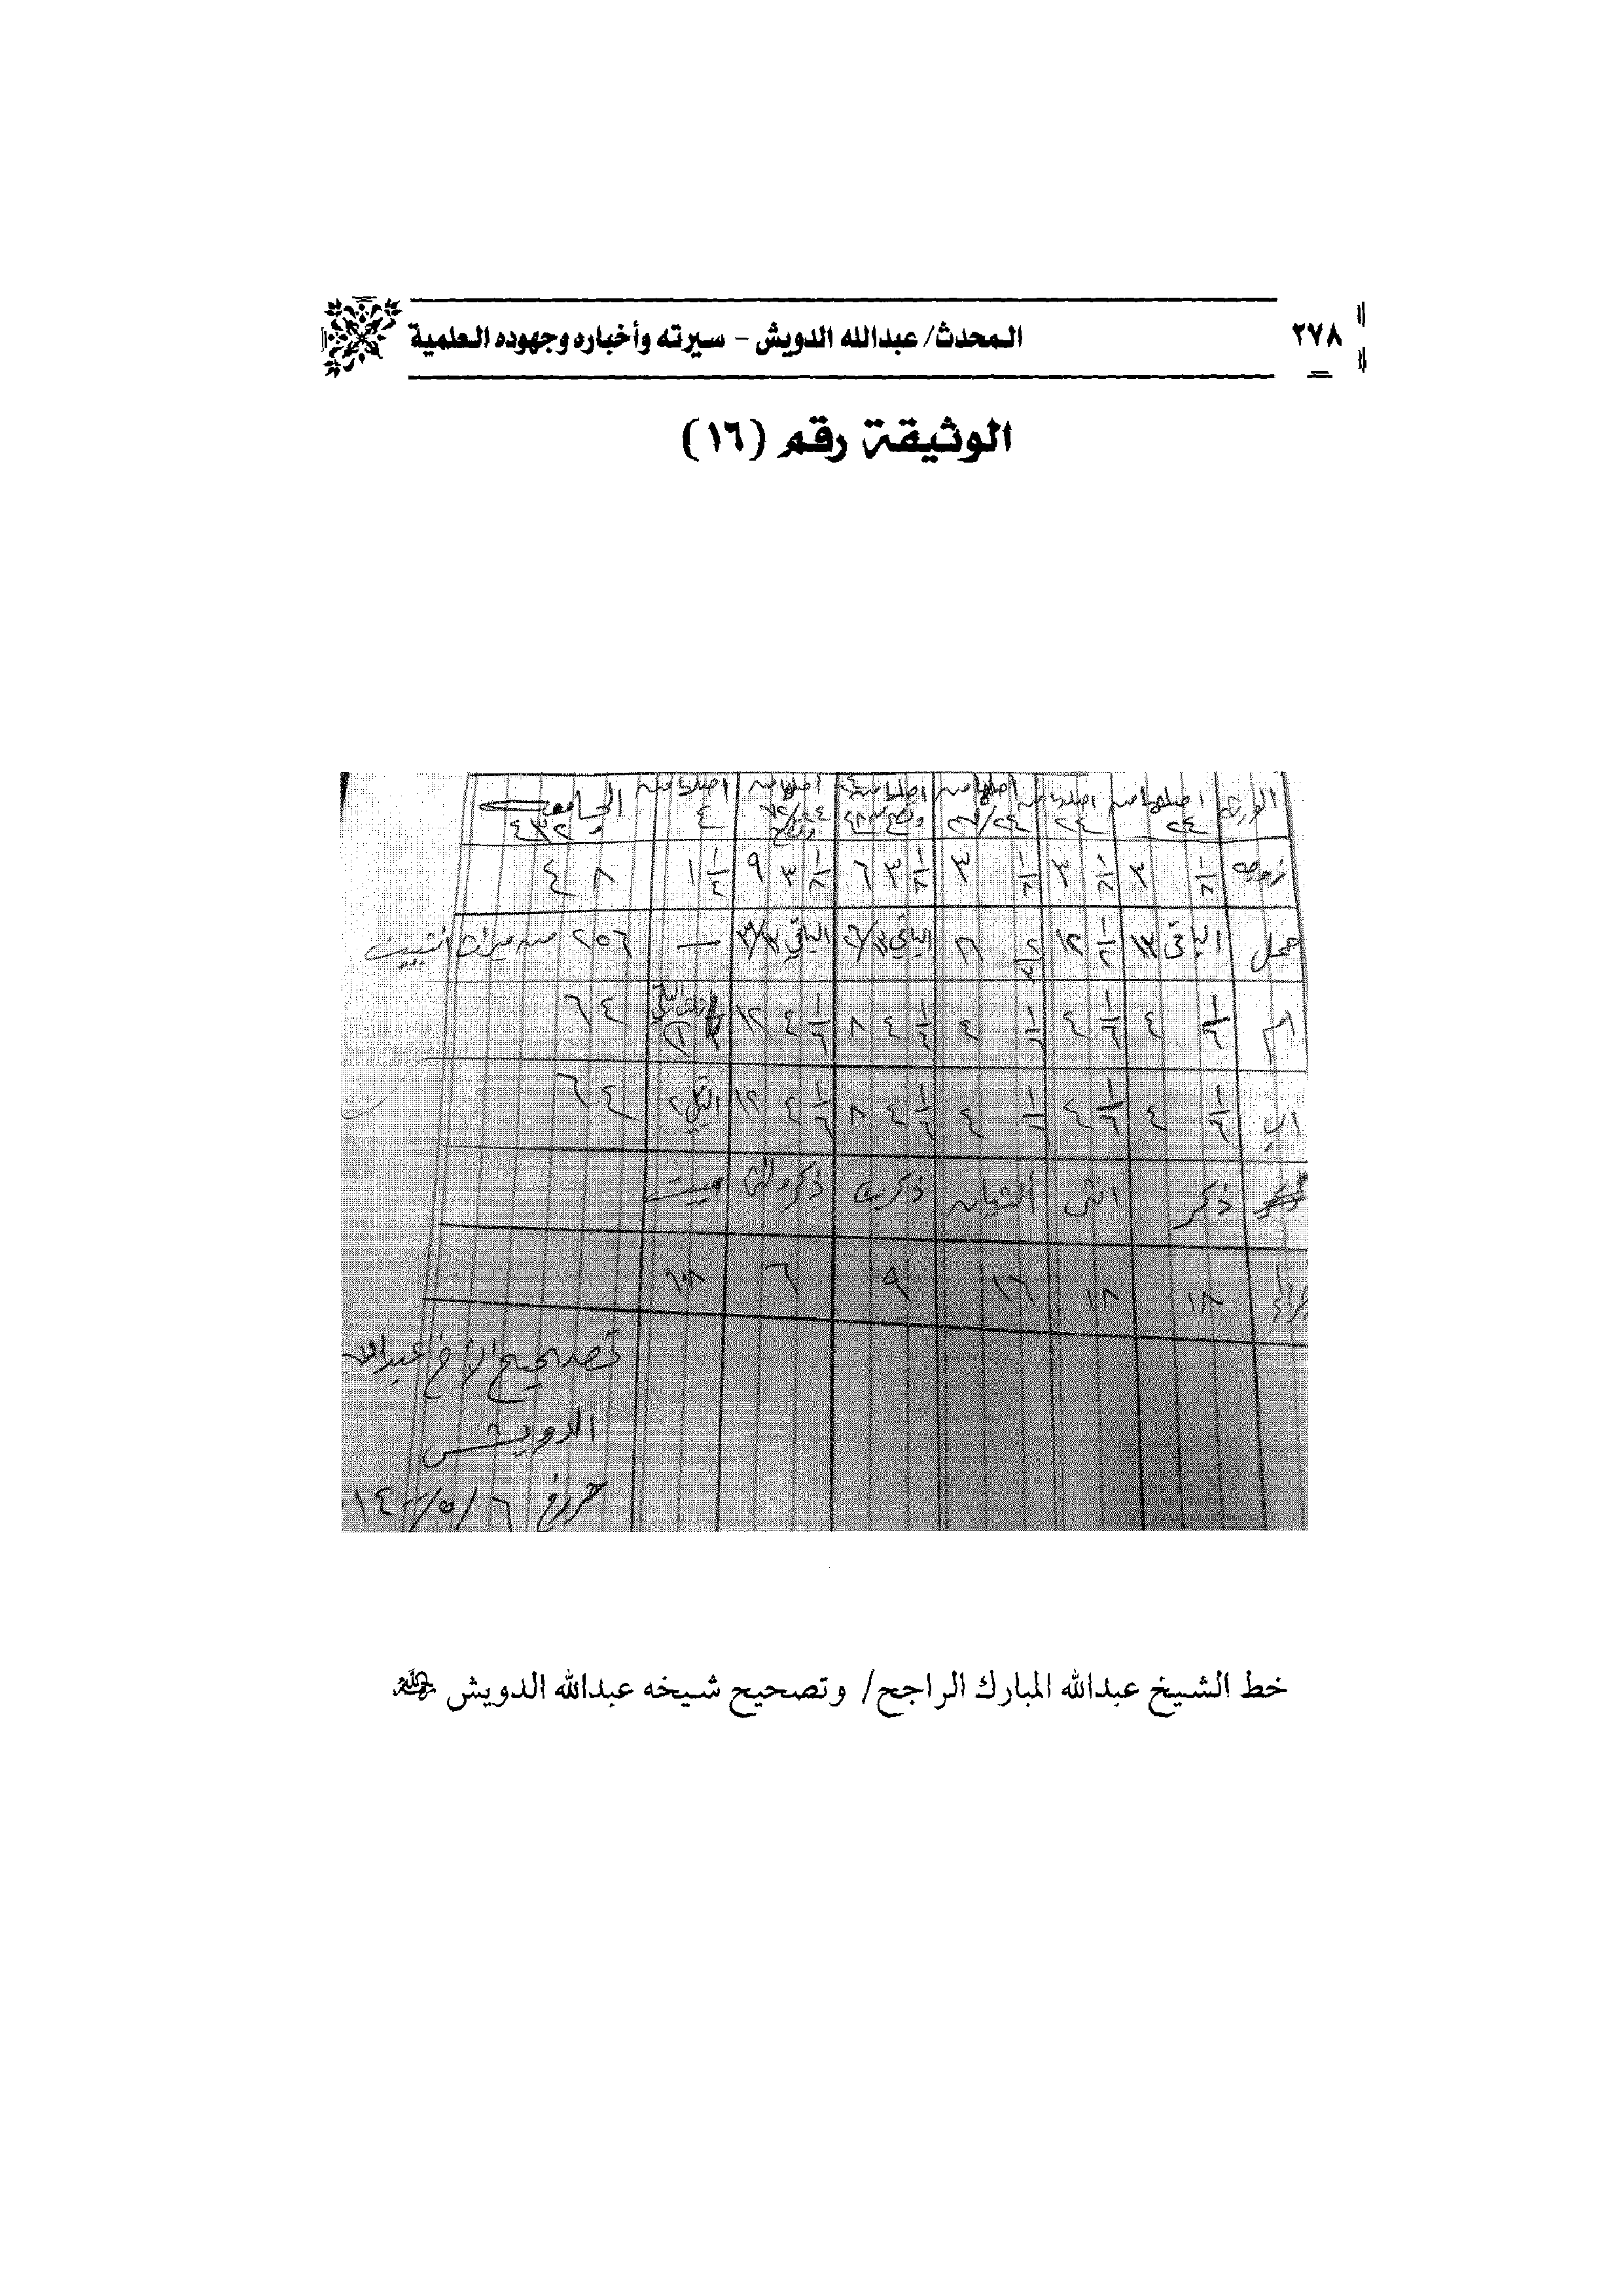 ٢٧٨
المحدث/ عبدالله الدويش - سيرته وأخباره وجهوده العلمية
الوثيقة رقم (١٦)
الورثة اصلها من ٢٤ اصلها من ٢٤ اصلها من ٢٤/٢٧ اصلها من ٢٤ وتصح ٤٨ اصلها من ٢٤/٧٢ اصلها من ٤ الجامعة ٤٣٢
زوجة ١/٨ ٣ ١/٨ ٣ ١/٨ ٣ ١/٨ ٣ ٦ ١/٨ ٣ ٩ ١/٤ ١ ٤٨
حمل الباقي ١٣ ١/٢ ١٢ ٢/٣ ١٦ الباقي ١٣/٢٦ الباقي ١٣/٣٩ — ٢٥٦ من ميراث انثيين
ام ١/٦ ٤ ١/٦ ٤ ١/٦ ٤ ١/٦ ٤ ٨ ١/٦ ٤ ١٢ ٦٤
اب ١/٦ ٤ ١/٦ ٤ ١/٦ ٤ ١/٦ ٤ ٨ ١/٦ ٤ ١٢ ٢ ٦٤
ذكر انثى انثيان ذكرين ذكر وانثى ميت
١٨ ١٨ ١٦ ٩ ٦ ١٠٨
تصحيح الأخ عبدالله
الدويش
حرر في ٦/٥/
خط الشيخ عبدالله المبارك الراجح/ وتصحيح شيخه عبدالله الدويش رحمه الله